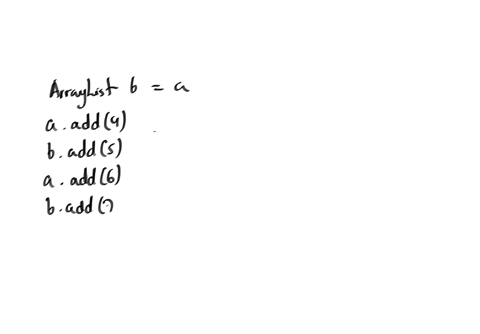 ArrayList b = a
a.add(4)
b.add(5)
a.add(6)
b.add(